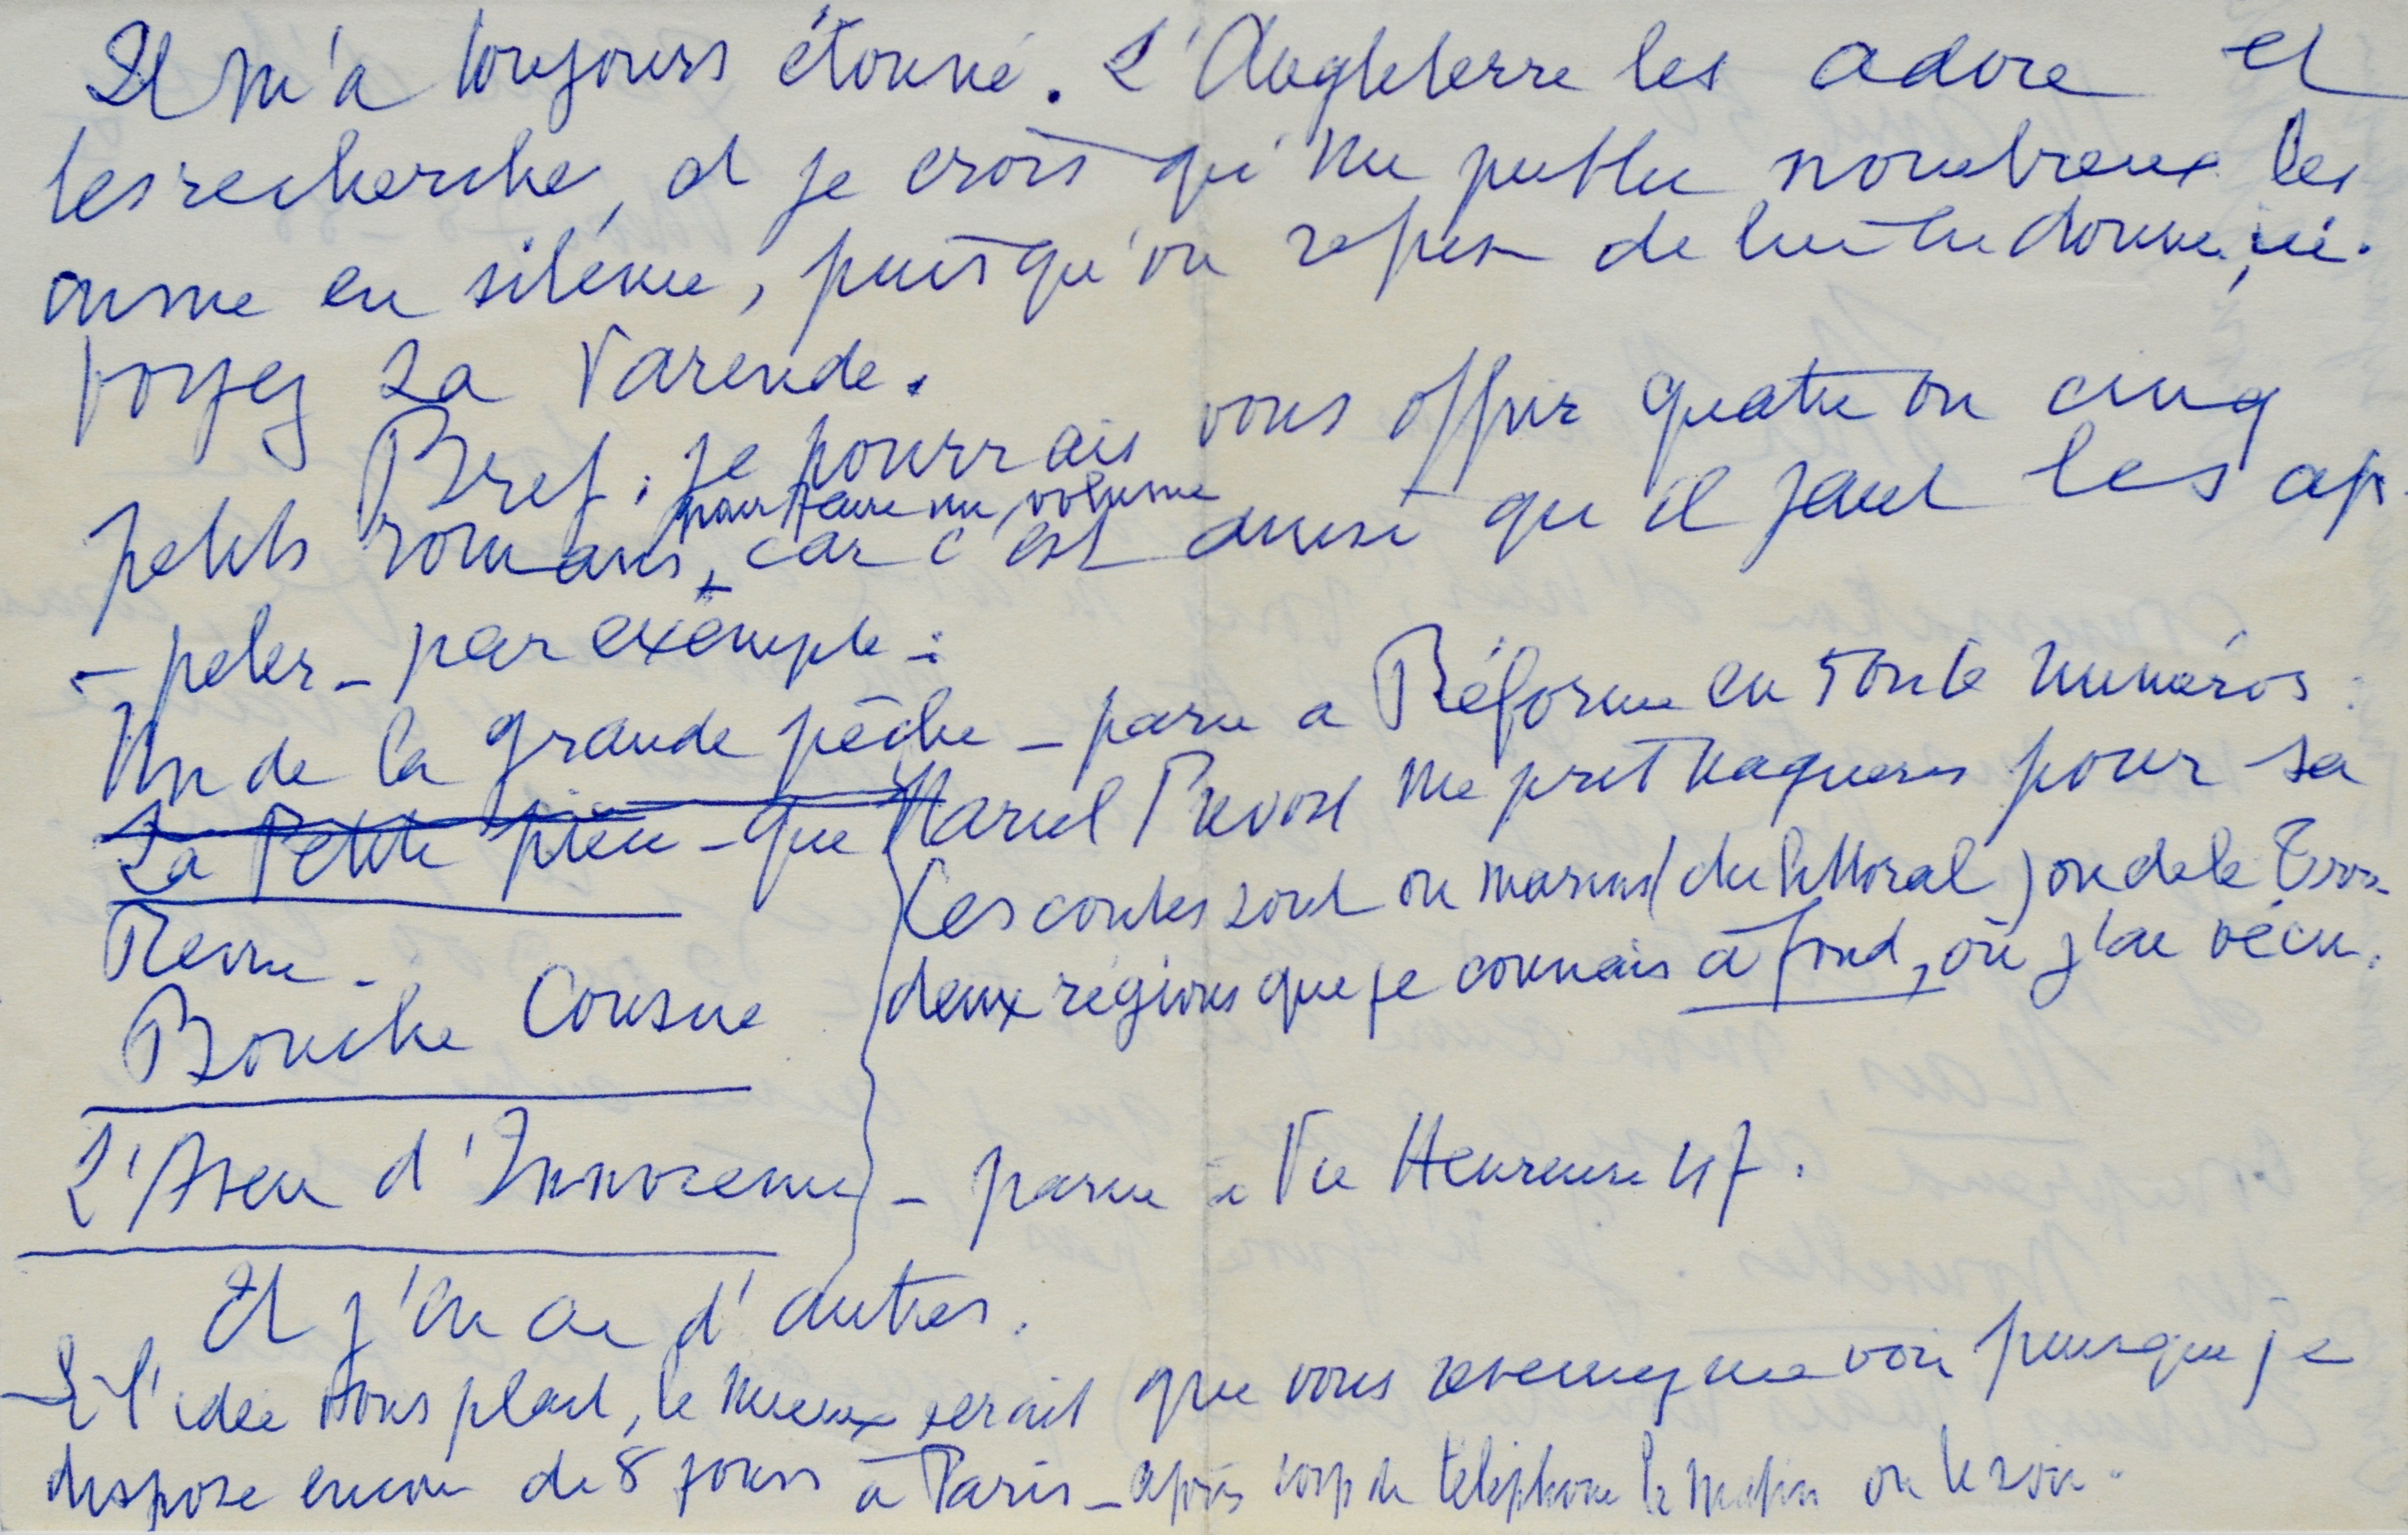 Il m'a toujours étonné. L'Angleterre les adore et
les recherche, et je crois qu'un public nombreux les
aime en silence, puisqu'on refuse de lui en donner, ici.
Voyez La Varende.
Bref, je pourrais vous offrir quatre ou cinq
petits romans, pour faire un volume car c'est ainsi qu'il faut les ap
-peler - par exemple :
Un de la grande pêche - paru à Réforme en numéros.
La Petite pièce - que Marcel Prévost me prit naguères pour sa
Revue.
Ces contes sont ou marins (du littoral) ou de la
deux régions que je connais à fond, où j'ai vécu.
Bouche Cousue
L'Aveu d'Innocence - paru à Vie Heureuse 47.
Et j'en ai d'autres.
Si l'idée vous plait, le mieux serait que vous reveniez me voir puisque je
dispose encore de 8 jours à Paris - après coup de téléphone le matin ou le soir.